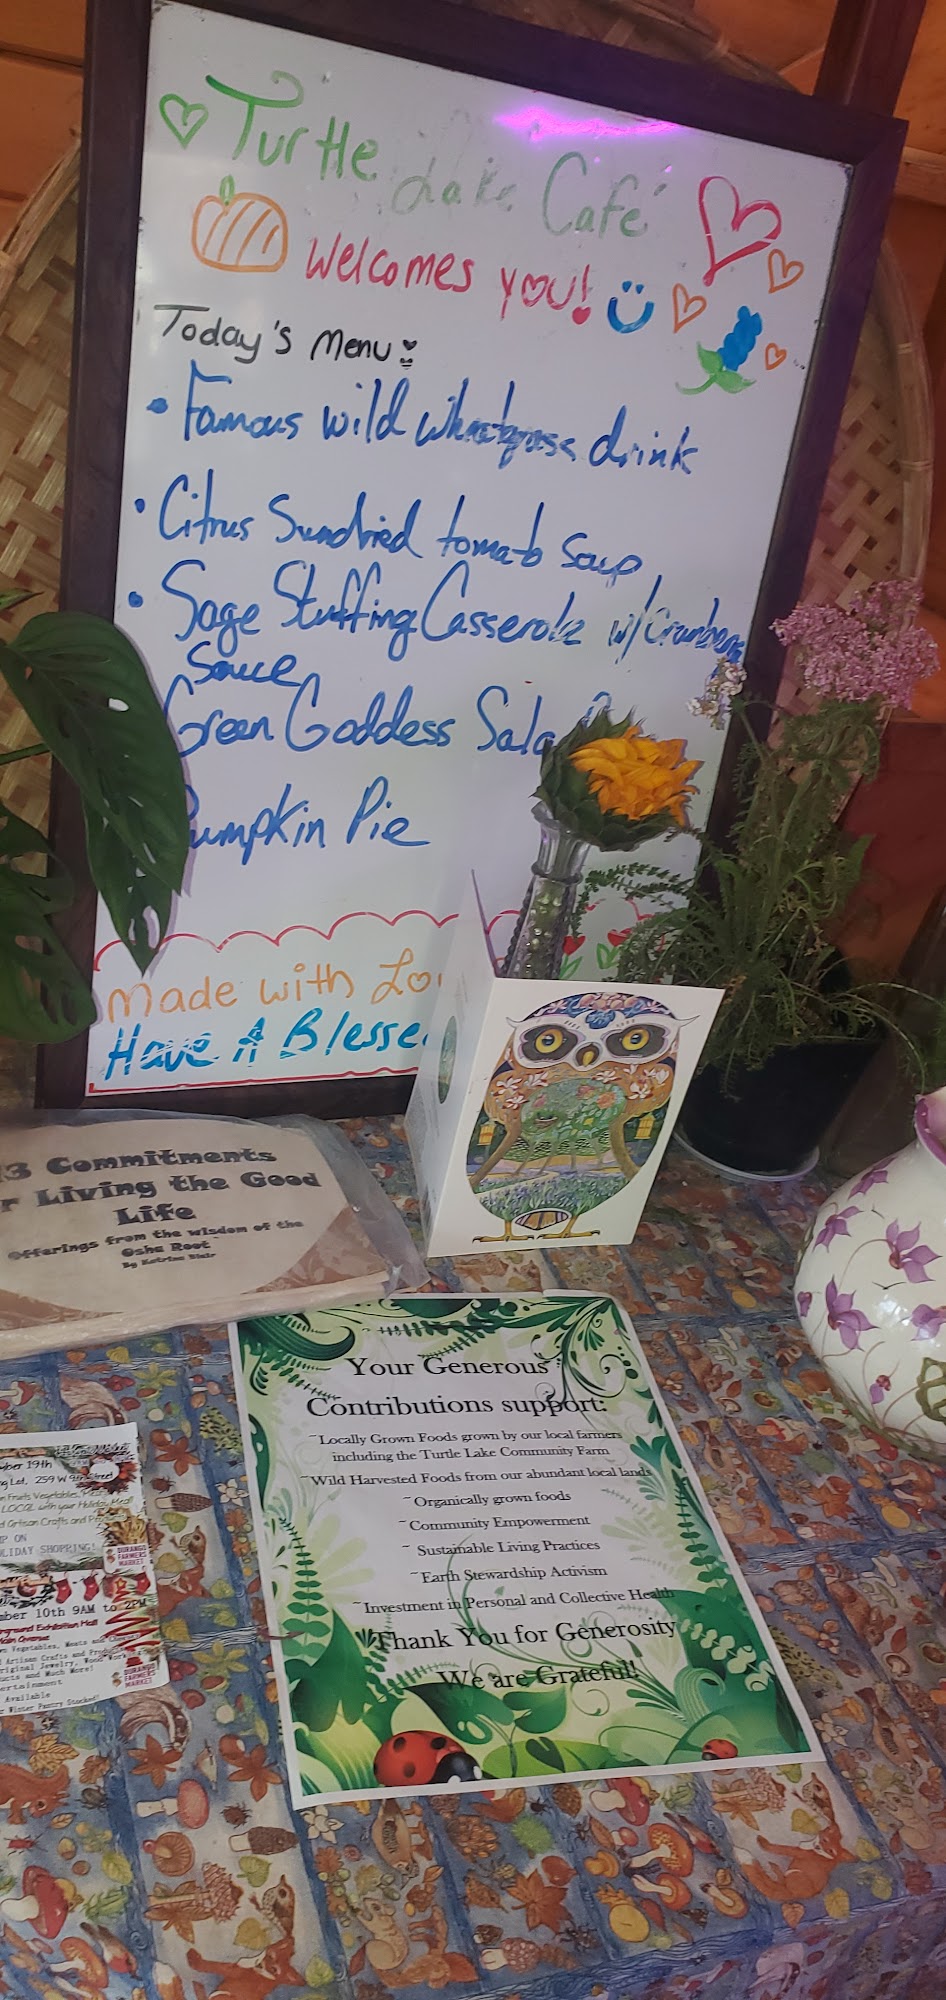 Turtle Lake Café
Welcomes you!
Today's Menu:
• Famous wild wheatgrass drink
• Citrus Sundried tomato Soup
• Sage Stuffing Casserole w/
Sauce
Green Goddess
Pumpkin Pie
Made with
Have A
13 Commitments
Living the Good
Life
Offerings from the wisdom of the
Osha Root
By Katrina Blair
Your Generous
Contributions support:
~Locally Grown Foods grown by our local farmers
including the Turtle Lake Community Farm
~Wild Harvested Foods from our abundant local lands
~Organically grown foods
~Community Empowerment
~ Sustainable Living Practices
~Earth Stewardship Activism
~Investment in Personal and Collective Health
Thank You for Generosity
We are Grateful!
19th
Lot, 259 W 9th Street
Fruits Vegetables,
LOCAL with your Holiday Meal!
Artisan Crafts and
ON
SHOPPING!
DURANGO
FARMERS
MARKET
10th 9AM to 2PM
Exhibition Hall
Avenue
Vegetables, Meats and
Artisan Crafts and
Jewelry, Wood
and Much More!
Available
Winter Pantry Stocked!
DURANGO
FARMERS
MARKET